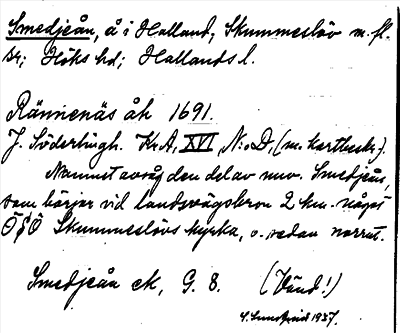 Smedjeån, å i Halland, Skummeslöv m. fl.
sr; Höks hd; Hallands l.
Rännenäs åh 1691.
J. Söderlingh. KrA, XVI, N:o D, (m. kartbeskr.).
Namnet avsåg den del av nuv. Smedjeån,
som börjar vid landsvägsbron 2 km. någst
ÖSÖ Skummeslövs kyrka, o. sedan norrut.
Smedjeån ek, G. 8. (Vänd!)
1937.